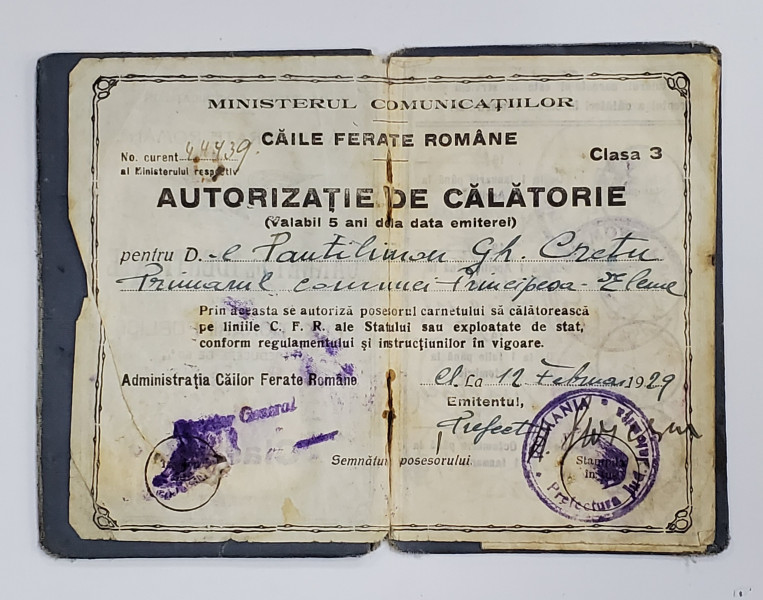 MINISTERUL COMUNICAȚIILOR
CĂILE FERATE ROMÂNE
No. curent 44439
al Ministerului respectiv
Clasa 3
AUTORIZAȚIE DE CĂLĂTORIE
(Valabil 5 ani dela data emiterei)
pentru D.-l Pantilimon Gh. Crețu
Primarul comunei Principesa-Elena
Prin aceasta se autoriză poseorul carnetului să călătorească
pe liniile C. F. R. ale Statului sau exploatate de stat,
conform regulamentului și instrucțiunilor în vigoare.
Administrația Căilor Ferate Române
12 Februar 1929
Emitentul,
Prefect
General
Semnătura posesorului
ROMANIA
Prefectura Jud.